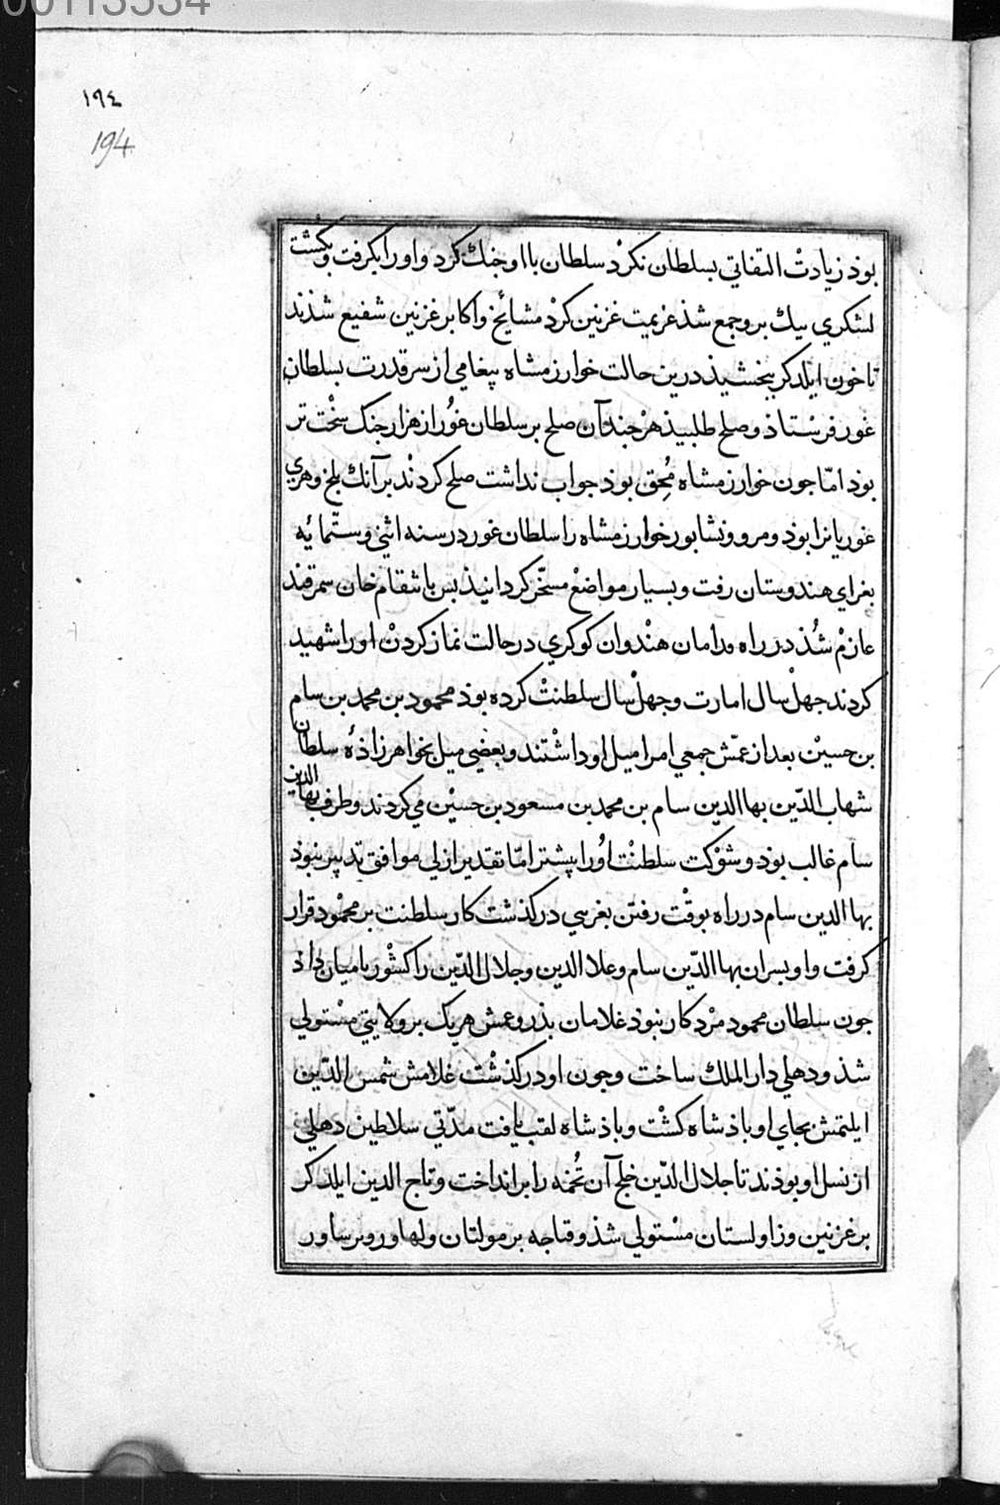 00113534
١٩٤
194
بوذ زیادتْ التفاتی بسلطان نکرد سلطان با او جنك کرد و اورا بکرفت وبکشت
لشکري نیك برو جمع شذ عزیمت غزنین کردْ مشایخ واکابر غزنین شفیع شذند
تا خون ایلدکر ببخشیذ درین حالت خوارزمشاه پیغامی از سر قدرت بسلطان
غور فرستاذ و صلح طلبیذ هرجند آن صلح بر سلطان غُور از هزار جنک سخْت تر
بوذ امّا جون خوارزمشاه مُحِق بوذ جواب نداشت صلح کردند برآنك بلخ وهري
غوریانرا بوذ و مرو ونشابور خوارزمشاه را سلطان غور در سنه اثنی وستمایٔه
بغزای هندوستان رفت و بسیار مواضع مسخّر کردانیذ بس بانتقام خان سمرقند
عازمْ شُذ در راه مدامان هنْدوان کوکري در حالت نماز کردنْ اورا شهید
کردند جهلْ سال امارت و جهلْ سال سلطنتْ کرده بوذ محمود بن محمد بن سام
بن حسیْن بعد از عمّش جمعی امرا میل او داشْتند و بعضی میل بخواهرزاذهٔ سلطان
شهاب الدّین بها الدین سام بن محمد بن مسعود بن حسیْن می کردند و طرف بها الدین
سام غالب بوذ و شوْکت سلطنْت اوُرا پیشتر امّا تقدیر ازلی موافق تدبیر نبوذ
بها الدین سام در راه بوقْت رفتن بغرسی درکذشت کار سلطنت بر محمْود قرار
کرفت و او بسران بها الدّین سام وعلا الدین وجلال الدّین را کشْور بامیان داذ
جون سلطان محمود مرْد کار نبوذ غلامان بذر وعمش هریك بر ولایتی مسْتولی
شذ و دهلی دار الملك ساخت وجون او درکذشْت غلامش شمس الدّین
ایلتمش بجای او باذشاه کشْت و باذشاه لقب یافت مدّتی سلاطین دهلی
از نسل او بوذند تا جلال الدّین خلج آن تُخمه را برانداخت و تاج الدین ایلدکر
بر غزنین و زاولستان مسْتولی شذ و قباجه بر مولتان ولهاور وبرساور